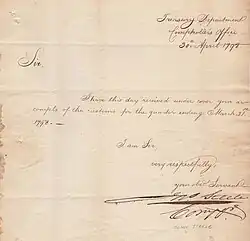 Treasury Department
Comptrollers Office
30th April 1792
Sir,
I have this day received under your
of the returns for the quarter ending March 31st
I am Sir,
very respectfully,
your obt. Servant
Compr.